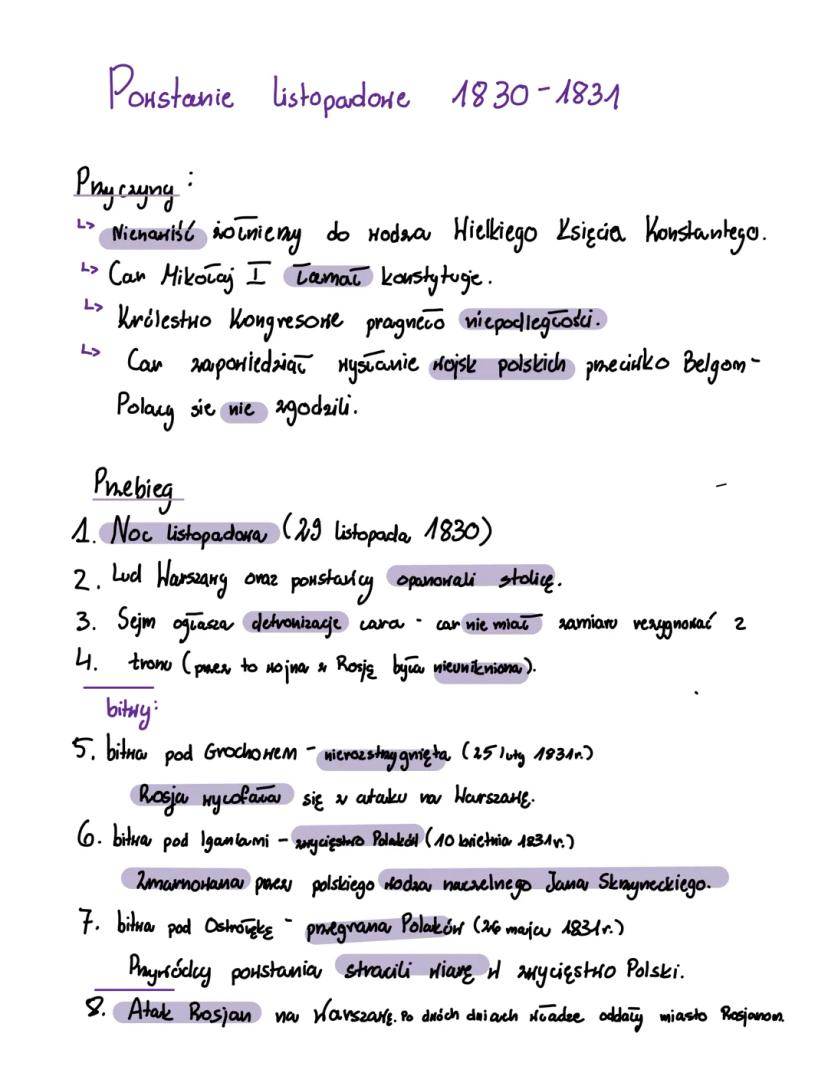 Powstanie listopadowe 1830-1831
Przyczyny:
↳ Nienawiść żołnierzy do wodza Wielkiego Księcia Konstantego.
↳ Car Mikołaj I łamał konstytuje.
↳ Królestwo Kongresowe pragnęło niepodległości.
↳ Car zapowiedział wysłanie wojsk polskich przeciwko Belgom-
Polacy sie nie zgodzili.
Przebieg
1. Noc listopadowa (29 listopada 1830)
2. Lud Warszawy oraz powstańcy opanowali stolicę.
3. Sejm ogłasza detronizacje cara - car nie miał zamiaru rezygnować z
4. tronu (przez to wojna z Rosją była nieunikniona).
bitwy:
5. bitwa pod Grochowem - nierozstrzygnięta (25 luty 1831r.)
Rosja wycofała się z ataku na Warszawę.
6. bitwa pod Iganiami - zwycięstwo Polaków (10 kwietnia 1831r.)
Zmarnowana przez polskiego wodza naczelnego Jana Skrzyneckiego.
7. bitwa pod Ostrołęką - przegrana Polaków (26 maja 1831r.)
Przywódcy powstania stracili wiarę w zwycięstwo Polski.
8. Atak Rosjan na Warszawę. Po dwóch dniach władze oddały miasto Rosjanom.